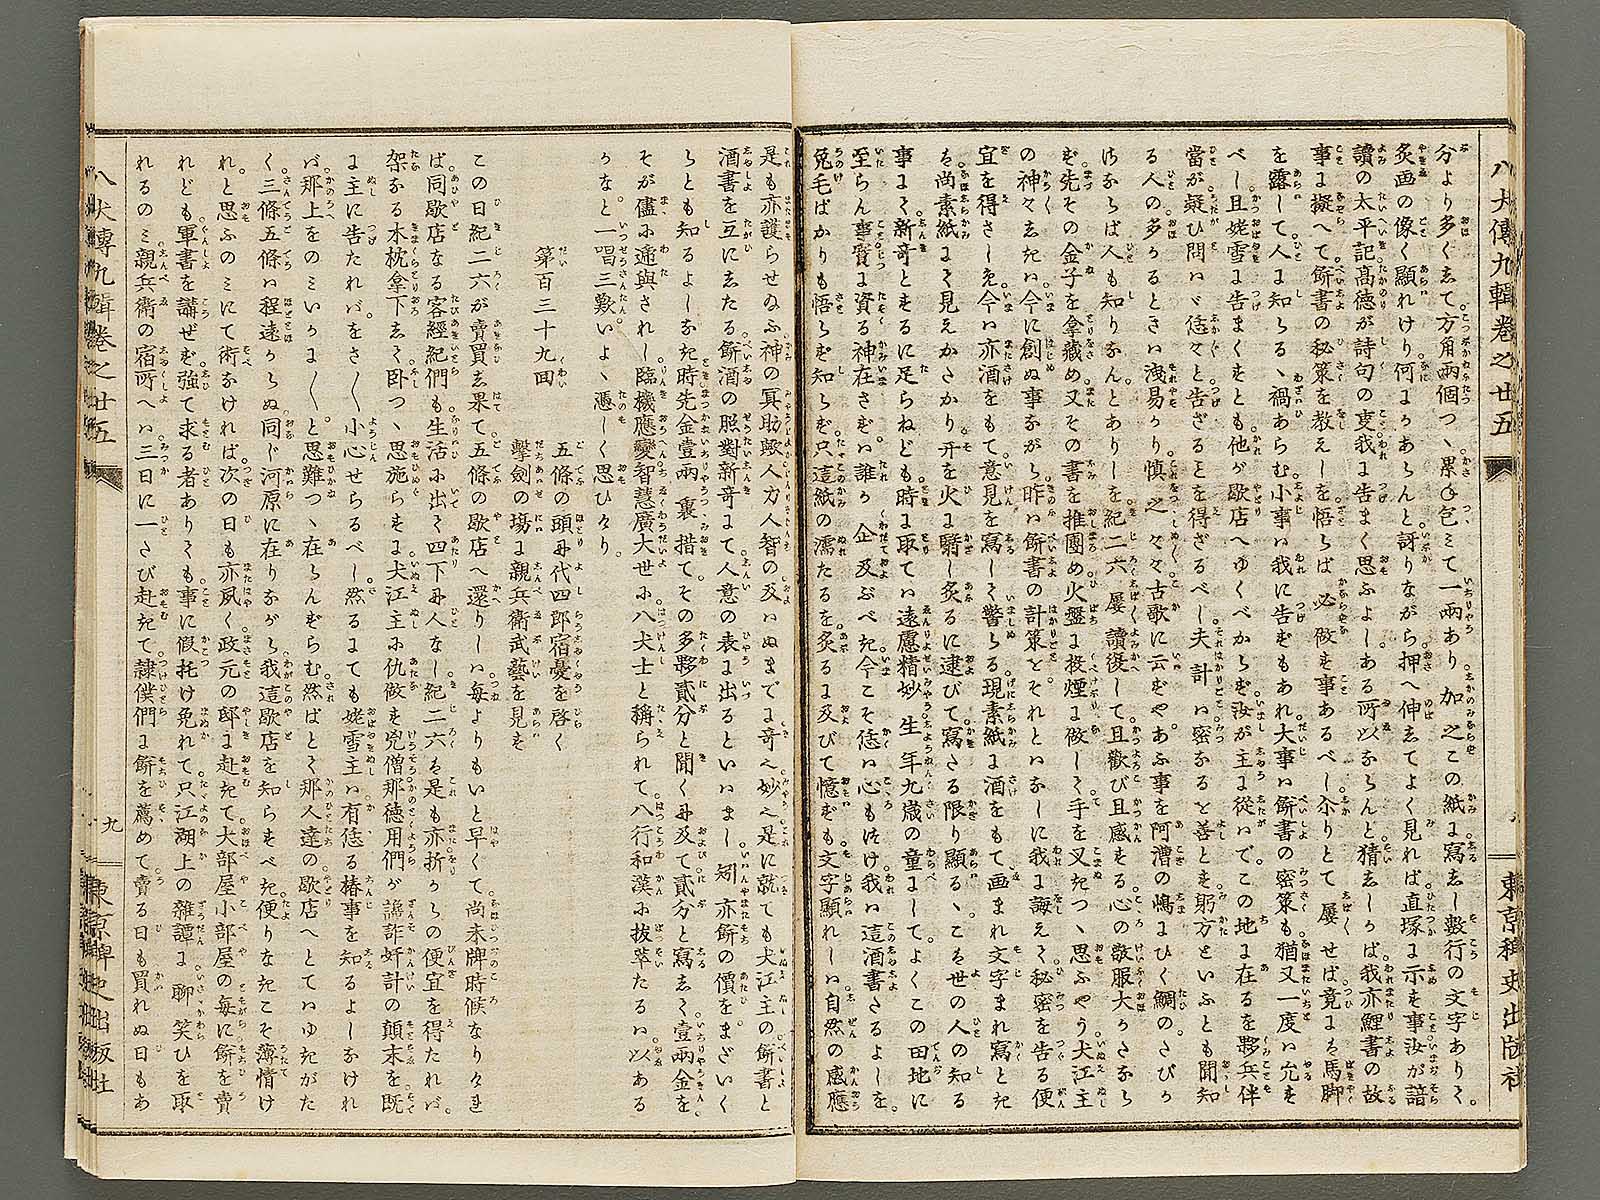 八犬傳九輯卷之廿五
東京稗史出版社
分より多くゑて方角兩個つゝ累ね包ミて一兩あり加之この紙に寫しゝ數行の文字ありく。
炙画の像く顯れけり何にかあらんと訝りながら押へ伸ゑてよく見れば直塚に示す事汝が諳
讀の太平記高徳が詩句の
事に擬へて餅書の秘策を教えしを悟らば必做す事あるべし
を露して人に知らるゝ禍あらむ小事ハ我に告ずもあれ大事ハ餅書の密策も猶又一度ハ
べし且姥雪に告まくすとも他が歇店へゆくべからず汝が主に從ハでこの地に在るを夥兵伴
當が疑ひ問ハゞ恁々と告ざることを得ざるべし夫計ハ密なるを善とす躬方といふとも聞知
る人の多かるときハ洩易かり慎之々々古歌に云ずやあふ事を阿漕の嶋にひく鯛のさびか
はならば人も知りなんとありしを紀二六屢讀復して且歡び且感する心の敬服大かさなら
ず先その金子を拿藏め又その書を推團め火盤に投煙に做しゝ手を又きつゝ思ふやう犬江主
の神々ゑきハ今に創ぬ事ながら昨ハ餅書の計策をそれとハなしに我に誨えく秘密を告る便
宜を得さしめ今ハ亦酒をもて意見を寫しく警らる現素紙に酒をもて画まれ文字まれ寫とき
を尚素紙にく見えかさかり开を火に翳し炙るに逮びて寫さる限り顯るゝこを世の人の知る
事にく新奇とするに足らねども時に取てハ遠慮精妙生年九歳の童にしてよくこの田地に
至らん事實に資る神在さずハ誰か企及ぶべき今こそ恁ハ心も法け我ハ這酒書さるよしを。
兔毛ばかりも悟らず知らず只這紙の濡たるを炙るに及びて憶ずも文字顯れしハ自然の感應
是も亦護らせ給ふ神の冥助歟人力人智の及ハぬまでに奇へ妙之是に就ても犬江主の餅書と
酒書を互にゑたる餅酒の照對新奇にて人意の表に出るといハまし矧亦餅の價をまざいく
らとも知るよしなき時先金壹兩裹措てその多夥貳分と聞く冊及て貳分と寫ゑく壹兩金を
そが儘ふ逓與されし臨機應變智慧廣大世ふ八犬士と稱られて八行和漢ふ抜萃たるハ以ある
かなと一唱三歎いよゝ憑しく思ひけり。
第百三十九回
五條の頭冊代四郎宿憂を啓く
擊劍の場に親兵衛武藝を見す
この日紀二六が賣買ゑ果て五條の歇店へ還りしハ毎よりもいと早くて尚未牌時候なりけき
ば同歇店なる客經紀們も生活ふ出く四下冊人なし紀二六る是も亦折からの便宜を得たれバ。
架なる木枕拿下ゑく臥つゝ思施らすに犬江主ふ仇做す兇僧那德用們が詭詐奸計の顛末を既
に主に告たれバをさ〳〵小心せらるべし然るにても姥雪主ハ有恁る椿事を知るよしなけれ
バ那上をのミいかに〳〵と思難つゝ在らんずらむ然ばとく那人達の歇店へとてハゆきがた
く三條五條ハ程遠からぬ同じ河原に在りながら我這歇店を知らすべき便りなきこそ薄情け
れ。と思ふのミにて術なければ次の日も亦夙く政元の邸に赴きて大部屋小部屋の毎に餅を賣
れども軍書を講ぜず強て求る者ありくも事に假托け免れて只江湖上の雜譚に聊笑ひを取
れるのミ親兵衛の宿所へハ三日に一さび赴きて隷僕們に餅を薦めて賣る日も買れぬ日もあ
八犬傳九輯卷之廿五
九
東京稗史出版社